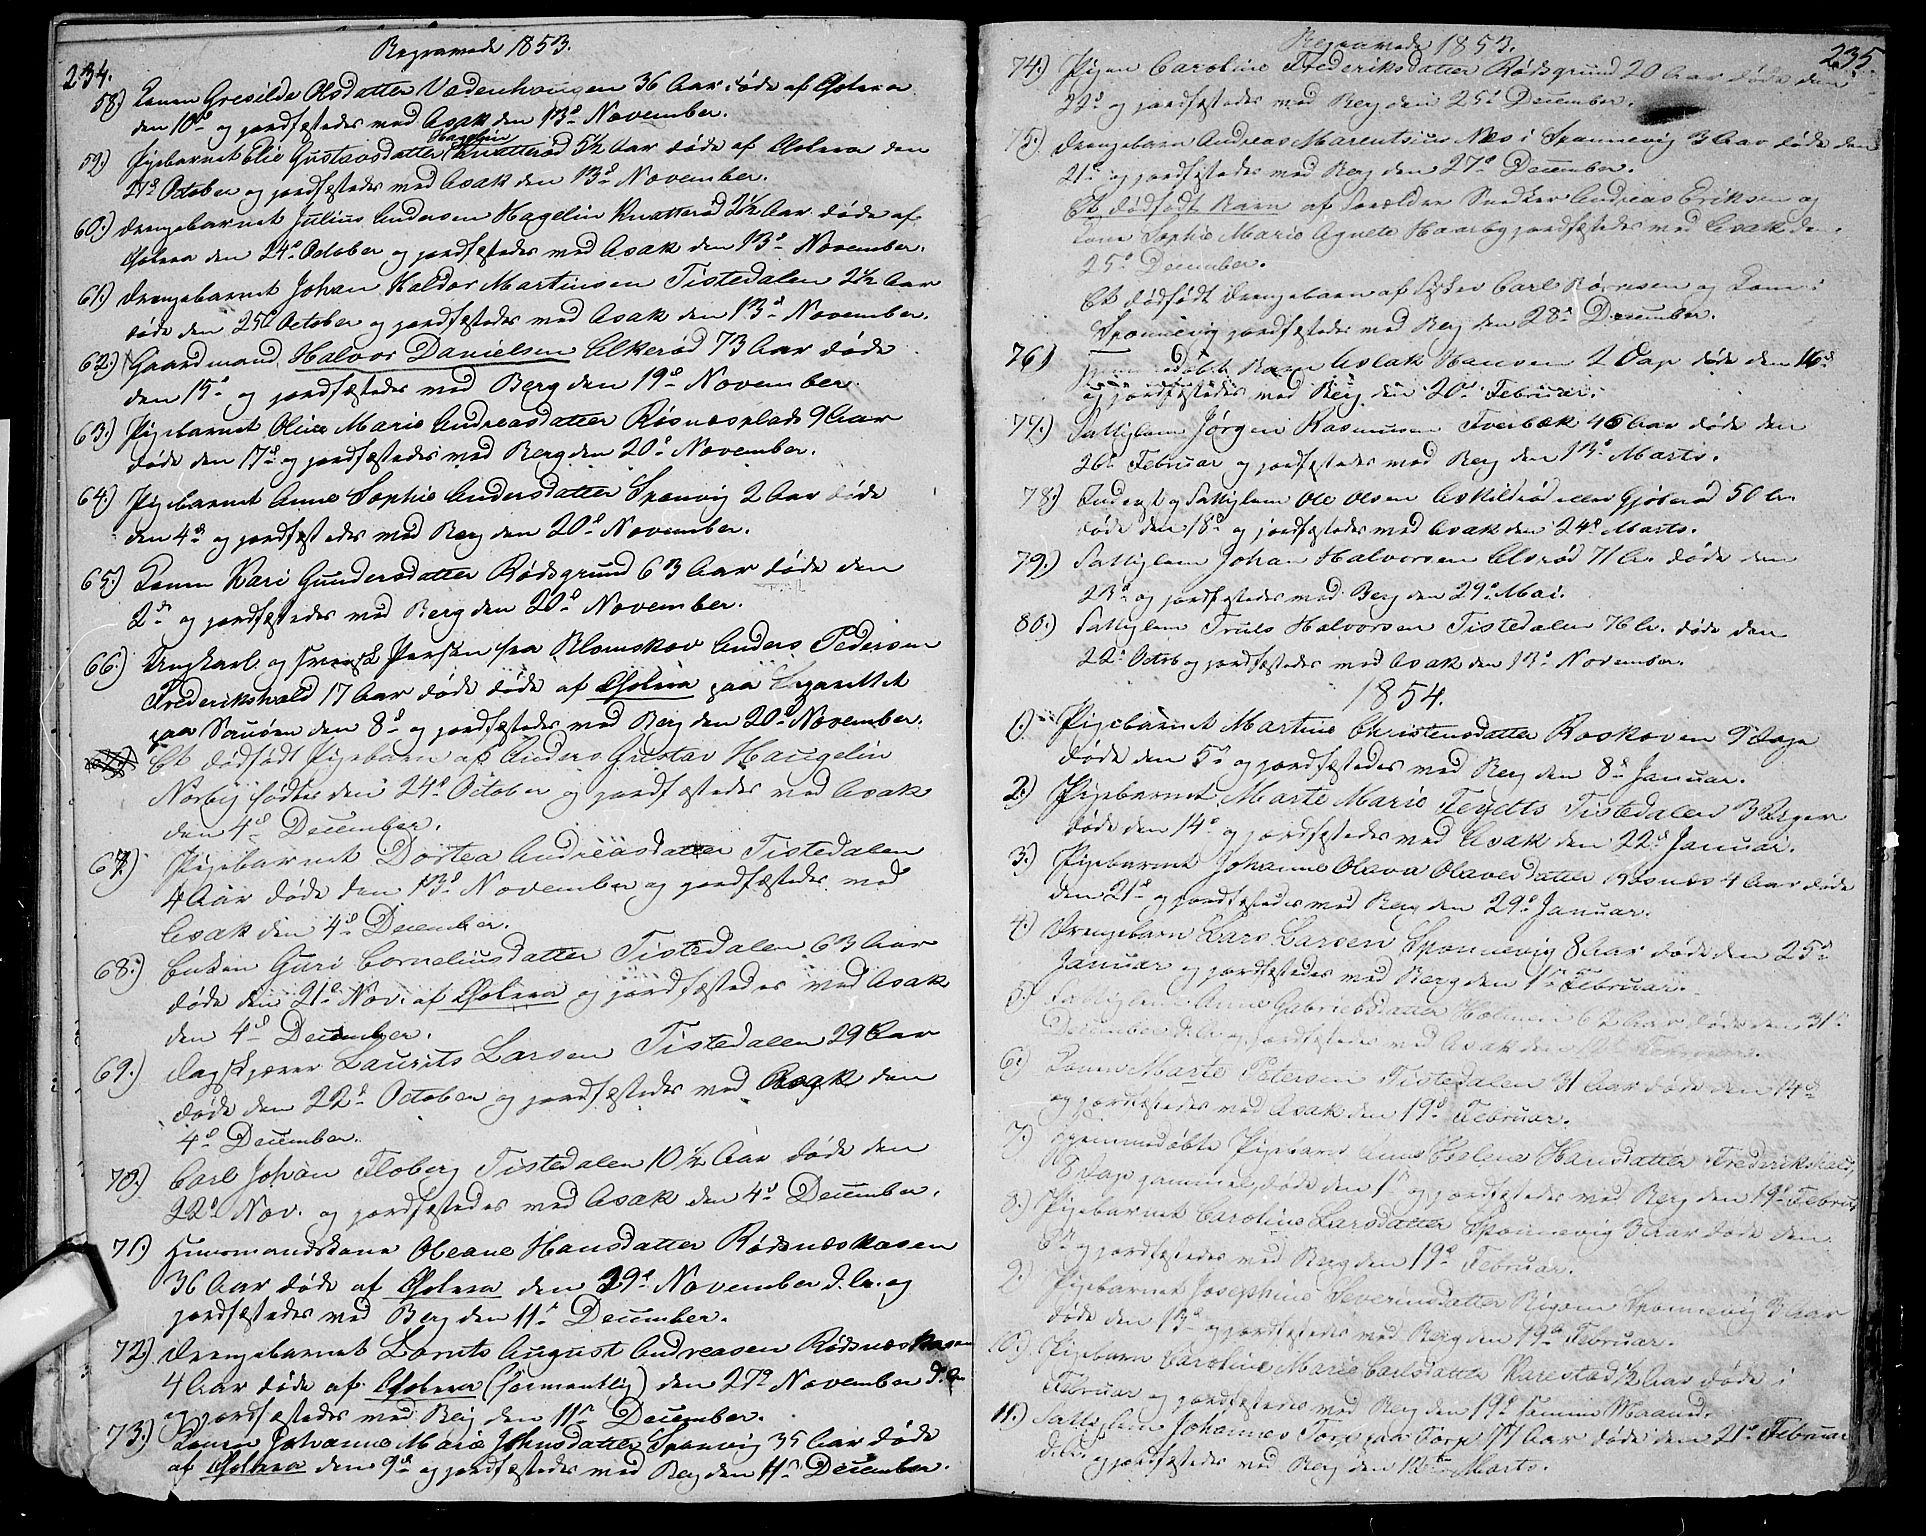 234.
Begravede 1853.
58.) Konen Gresilde Olsdatter Vedenhaugen 36 Aar døde af Cholera
den 10d og jordfæstedes ved Asak den 13d November.
Hagelin
59.) Pigebarnet Elie Gustavsdatter Knatterød 5½ Aar døde af Cholera den
27d October og jordfæstedes ved Asak den 13d November.
60.) Drengebarnet Julius Andersen Hagelin Knatterød 2½ Aar døde af
Cholera den 24d October og jordfæstedes ved Asak den 13d November.
61.) Drengebarnet Johan Haldor Martinsen Tistedalen 2½ Aar
døde den 25d October og jordfæstedes ved Asak den 13d November.
62.) Gaardmand Halvor Danielsen Elkerød 73 Aar døde
den 15d og jordfæstedes ved Berg den 19d November.
63.) Pigebarnet Oline Marie Andreasdatter Røsnesplads 9 Aar
døde den 17d og jordfæstedes ved Berg den 20d November.
64.) Pigebarnet Anne Sophie Andersdatter Sponvig 2 Aar døde
den 4d og jordfæstedes ved Berg den 20d November.
65.) Konen Kari Gundersdatter Rødsgrund 63 Aar døde den
2d og jordfæstedes ved Berg den 20d November.
66.) Ungkarl og svensk Person fra Blomskov Anders Pedersen
Frederikshald 17 Aar døde døde af Cholera paa Lazarettet
paa Sauøen den 8d og jordfæstedes ved Berg den 20d November.
Et dødfødt Pigebarn af Anders Gustav Haugelin
Norby fødtes den 24d October og jordfæstedes ved Asak
den 4d December.
67.) Pigebarnet Dortea Andreasdatter Tistedalen
4 Aar døde den 13d November og jordfæstedes ved
Asak den 4d December.
68.) Enken Guri Corneliusdatter Tistedalen 63 Aar
døde den 21d Nov. af Cholera og jordfæstedes ved Asak
den 4d December.
69.) Dagskjærer Laurits Larsen Tistedalen 29 Aar
døde den 22d October og jordfæstedes ved Asak den
4d December.
70.) Carl Johan Floberg Tistedalen 10½ Aar døde den
22d Nov. og jordfæstedes ved Asak den 4d December.
71.) Huusmandskone Oleane Hansdatter Rødsneskasen
36 Aar døde af Cholera den 29d November d.A. og
jordfæstedes ved Berg den 11d December.
72.) Drengebarnet Lornts August Andreasen Rødsneskasen
4 Aar døde af Cholera (formentlig) den 27d November d.A.
og jordfæstedes ved Berg den 11d December.
73.) Konen Johanne Marie Johnsdatter Sponvig 35 Aar døde
af Cholera den 9d og jordfæstedes ved Berg den 11d December.
235.
Begravede 1853.
74.) Pigen Caroline Frederiksdatter Rødsgrund 20 Aar døde den
22d og jordfæstedes ved Berg den 25d December.
75.) Drengebarn Andreas Marentsius Næs i Sponnevig 3 Aar døde den
21d og jordfæstedes ved Berg den 27d December.
Et dødfødt Barn af Forældre Snedker Andreas Eriksen og
Kone Sophie Marie Agnete Haarby jordfæstedes ved Asak den
25d December.
Et dødfødt Drengebarn af Carl Børresen og Kone i
Sponnevig jordfæstedes ved Berg den 28d December.
76) Hjemmedøbt Barn Aslak Hansen 2 Dage døde den 16d
og jordfæstedes ved Berg den 20d Februar.
77.) Fattiglem Jørgen Rasmusen Tveibæk 46 Aar døde den
26d Februar og jordfæstedes ved Berg den 13d Marts.
78.) Inderst og Fattiglem Ole Olsen Askildrød eller Gjøberød 50 A.
døde den 18d og jordfæstedes ved Asak den 24d Marts.
79.) Fattiglem Johan Halvorsen Elsrød 71 A. døde den
23d og jordfæstedes ved Berg den 29d Mai.
80.) Fattiglem Truls Halvorsen Tistedalen 76 A. døde den
22d Octob og jordfæstedes ved Asak den 13d November.
1854.
1.) Pigebarnet Martine Christensdatter Roskoven 9 Dage
døde den 5d og jordfæstedes ved Berg den 8d Januar.
2.) Pigebarnet Marte Marie Tistedalen 3 Uger
døde den 14d og jordfæstedes ved Asak den 22d Januar.
3.) Pigebarnet Johanne Olava Olavesdatter Røsnæs 4 Aar døde
den 21d og jordfæstedes ved Berg den 29d Januar.
4.) Drengebarn Lars Larsen Sponnevig 8 Aar døde den 25d
Januar og jordfæstedes ved Berg den 1d Februar.
5.) Fattiglem Anne Gabrielsdatter Holmen 62 Aar døde den 31d
December d.A. og jordfæstedes ved Asak den 12d Februar.
6.) Konen Marte Petersen Tistedalen 31 Aar døde den 14d
og jordfæstedes ved Asak den 19d Februar.
7.) Hjemmedøbte Pigebarn Anne Helene Hansdatter Frederikshald,
8 Dage gammel, døde den 1d og jordfæstedes ved Berg den 19d Februar
8.) Pigebarnet Caroline Larsdatter Sponnevig 3 Aar døde den
6d og jordfæstedes ved Berg den 19d Februar.
9.) Pigebarnet Josephine Severinsdatter Bigom Sponnevig 3 Aar
døde den 13d og jordfæstedes ved Berg den 19d Februar.
10.) Pigebarn Caroline Marie Carlsdatter Karestad ½ Aar døde i
Februar og jordfæstedes ved Berg den 19d samme Maaned.
11.) Fattiglem Johannes Torp paa Torp 77 Aar døde den 21d Februar
d.A. og jordfæstedes ved Berg den 12te Marts.